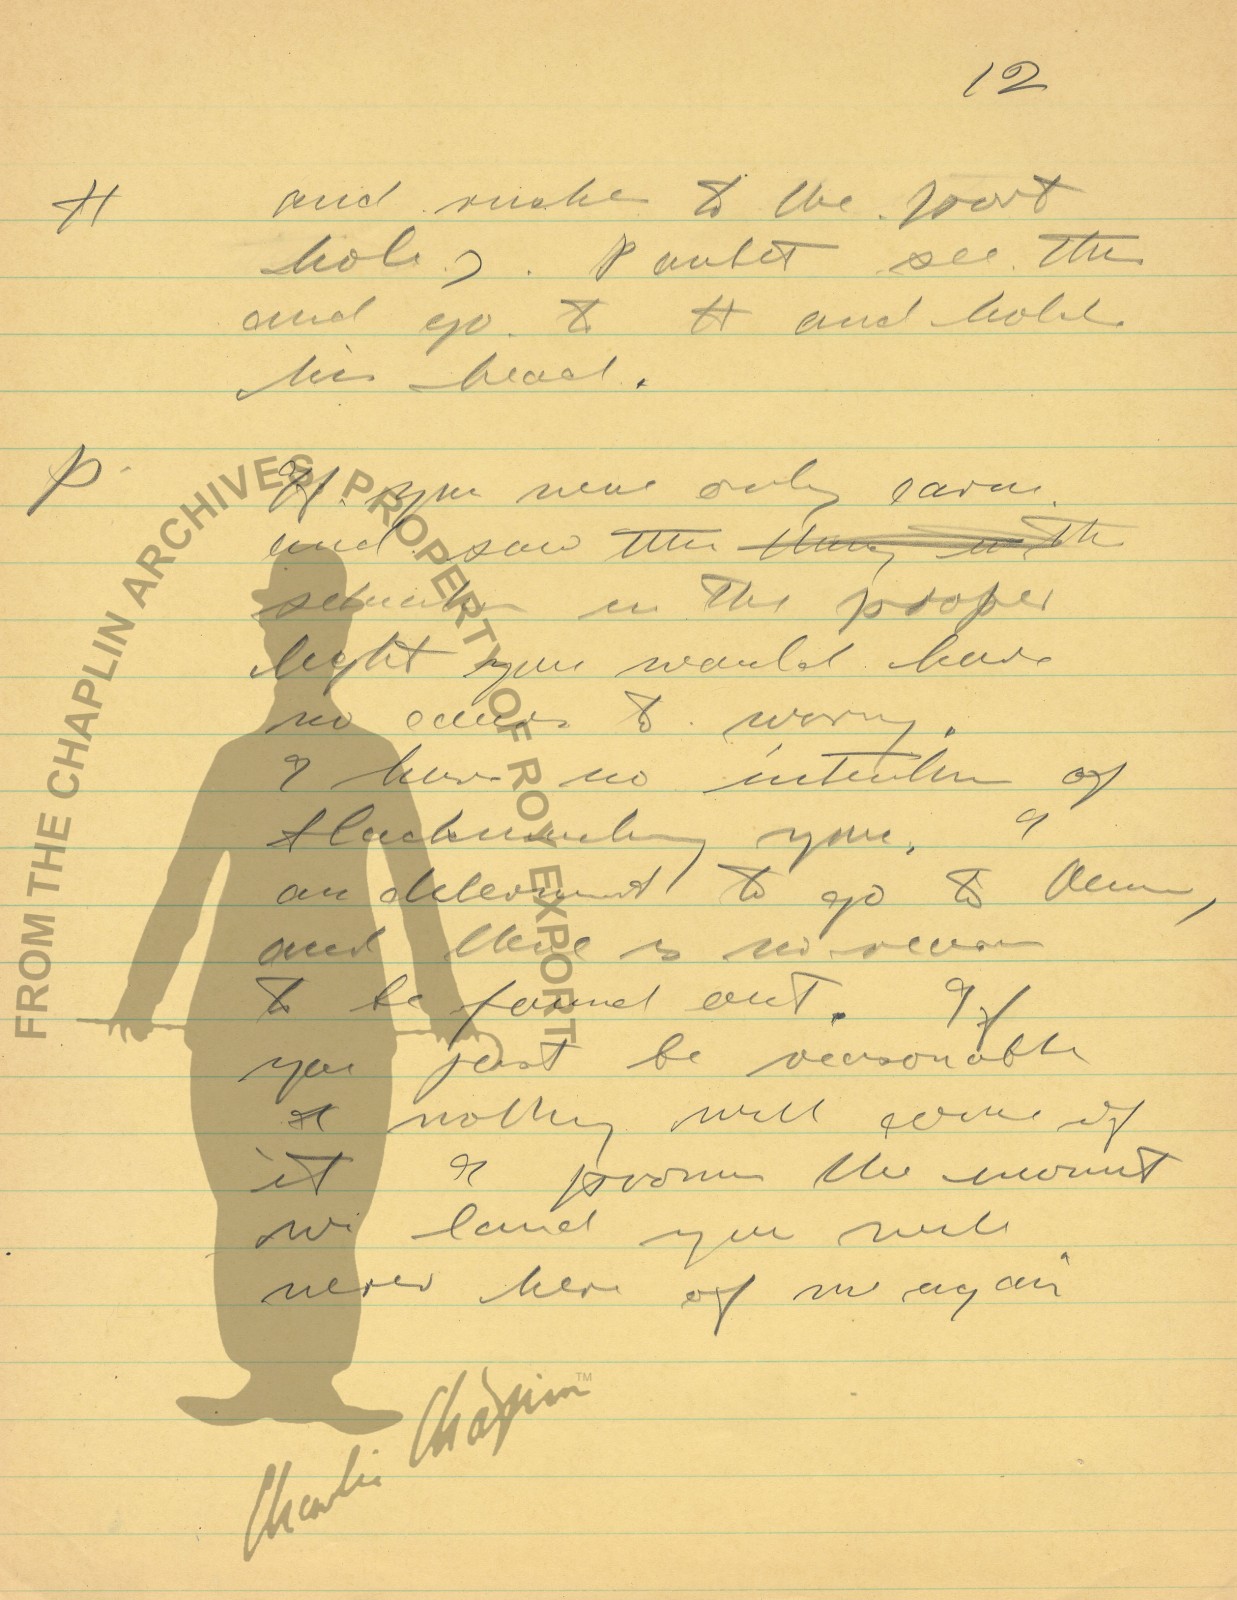 12
H and rushes to the port
hole). P see this
and go to H and holds
his head.
P. If you were only
and saw the
situation in the proper
light you would have
no to worry.
I have no intention of
blackmailing you. I
am to go to
and there is no reason
to be found out. If
you just be reasonable
nothing will come of
it I promise the moment
we land you will
never here of me again
FROM THE CHAPLIN ARCHIVES. PROPERTY OF ROY EXPORT
Charlie Chaplin™